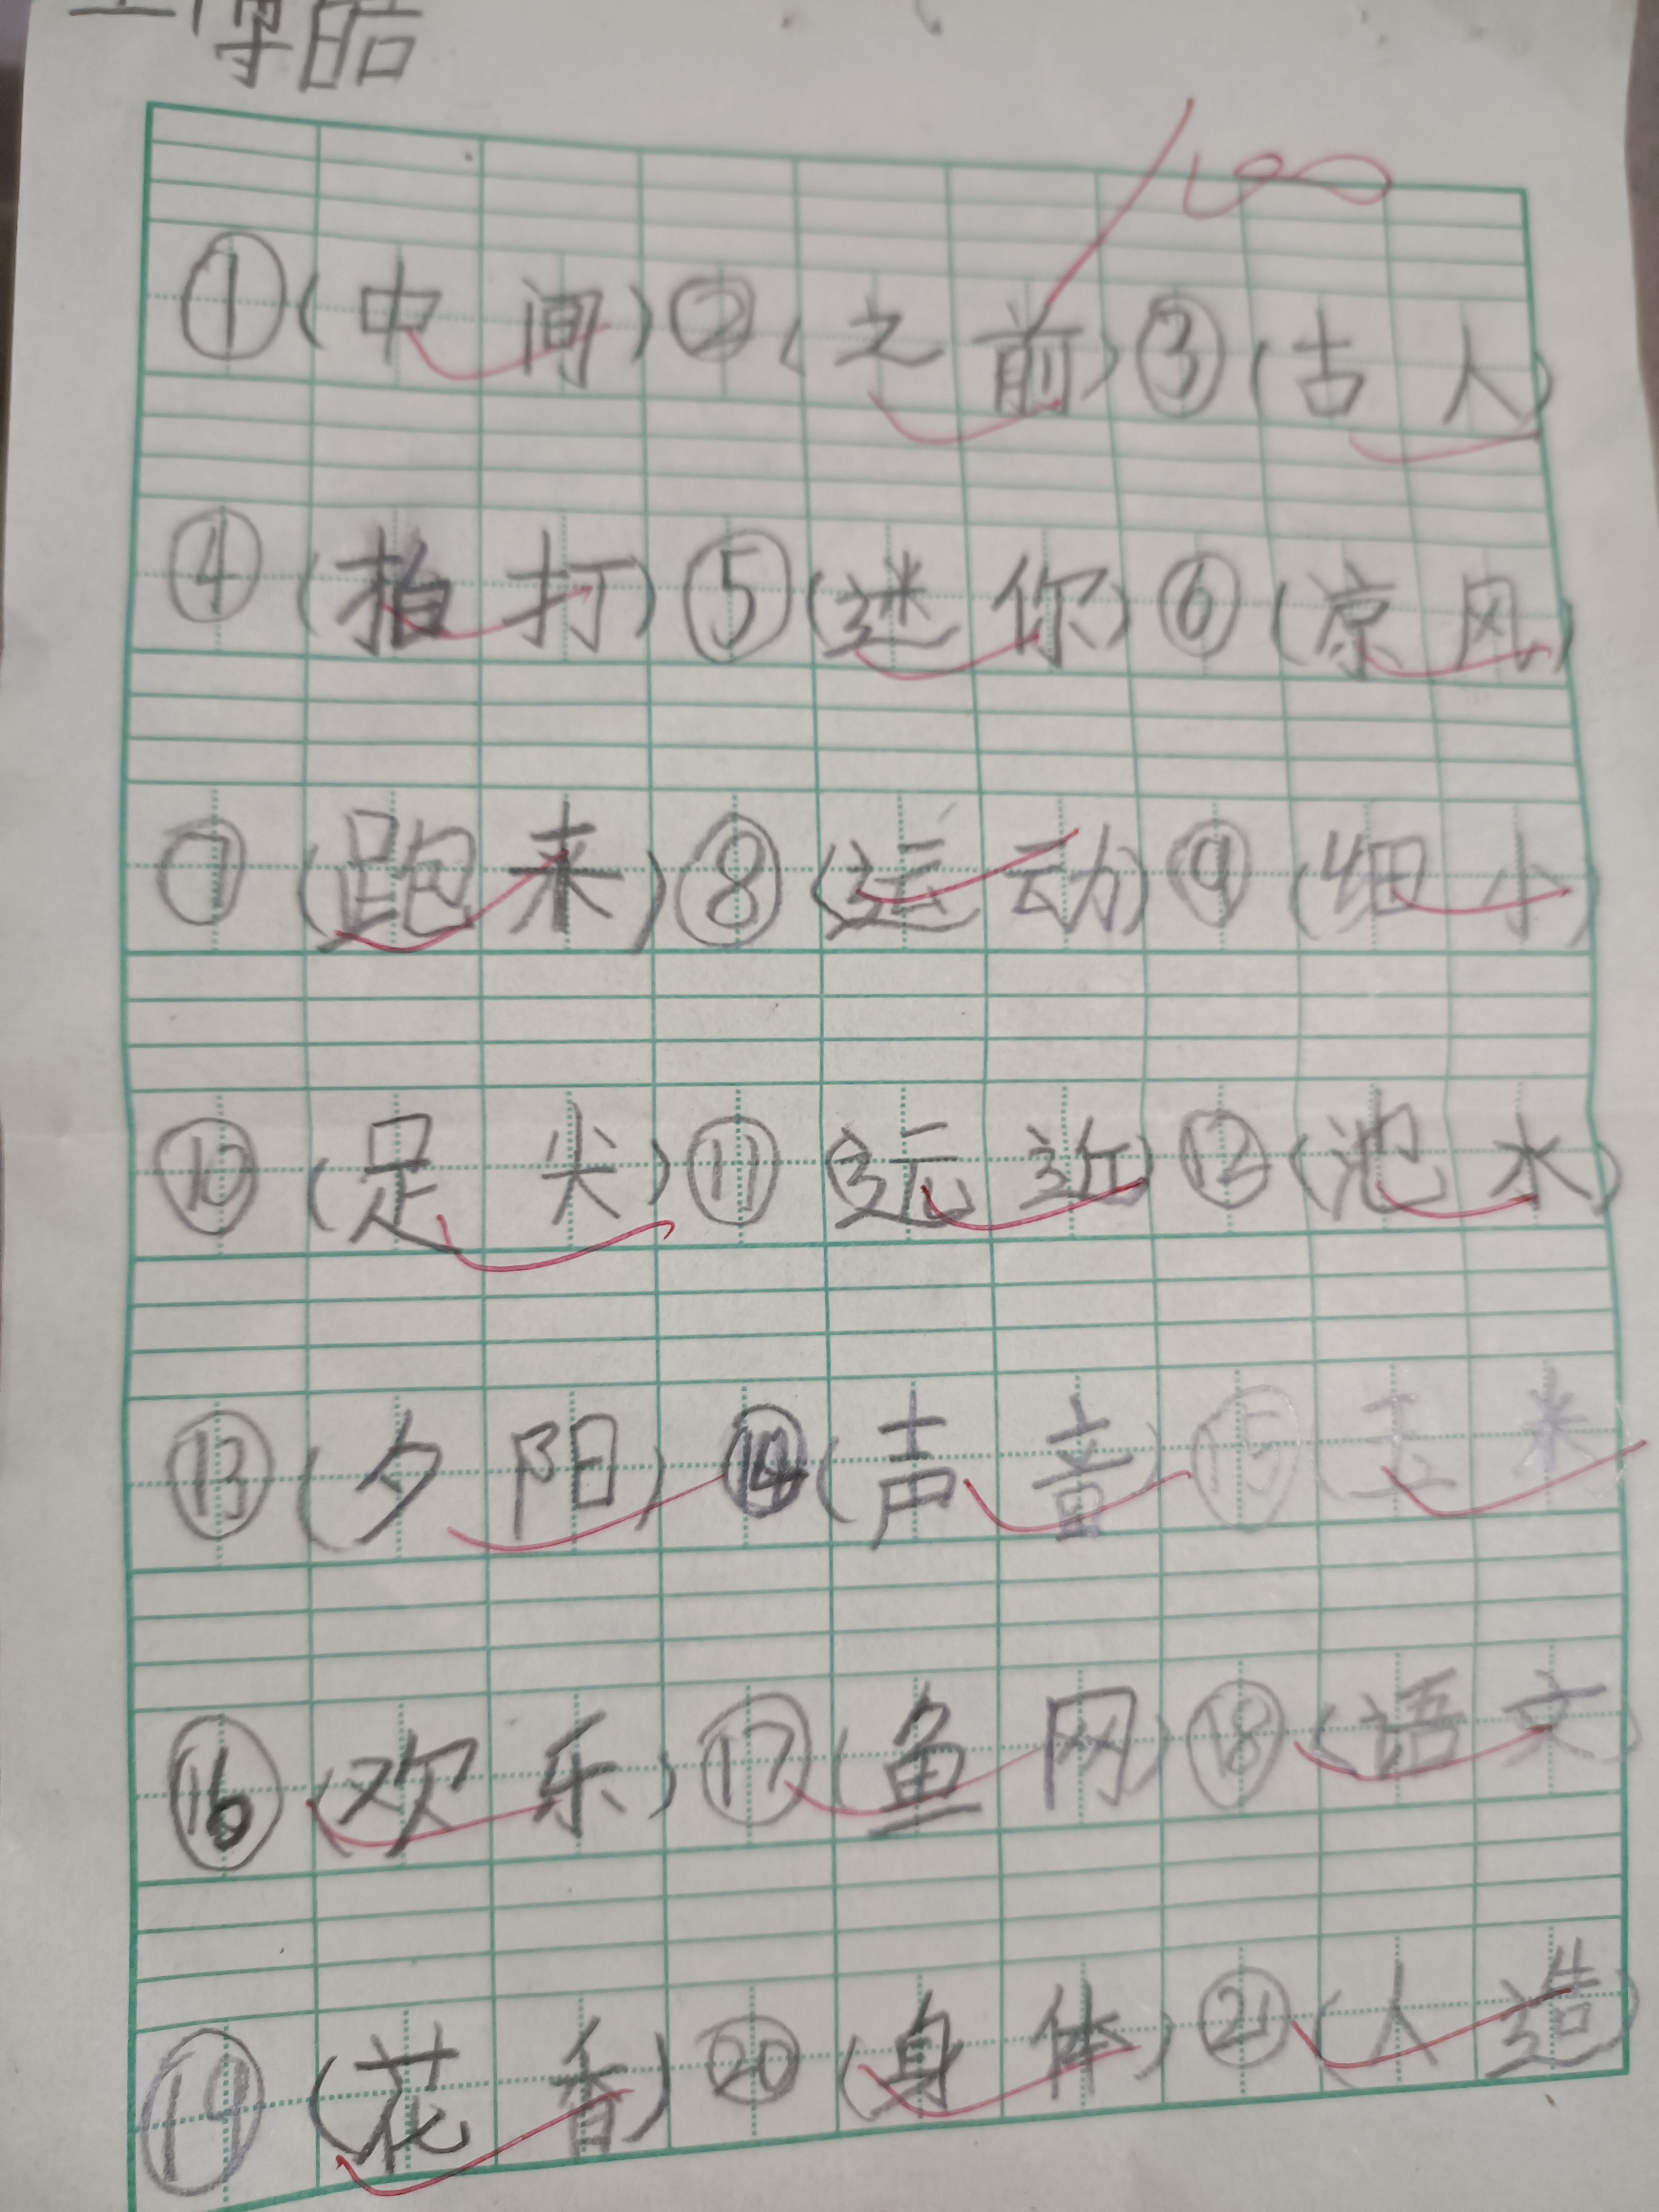 博皓
100
①(中间)②(之前)③(古人)
④(拍打)⑤(迷你)⑥(凉风)
⑦(跑来)⑧(运动)⑨(细小)
⑩(足尖)⑪(远近)⑫(池水)
⑬(夕阳)⑭(声音)⑮(玉米)
⑯(欢乐)⑰(鱼网)⑱(语文)
⑲(花香)⑳(身体)㉑(人造)